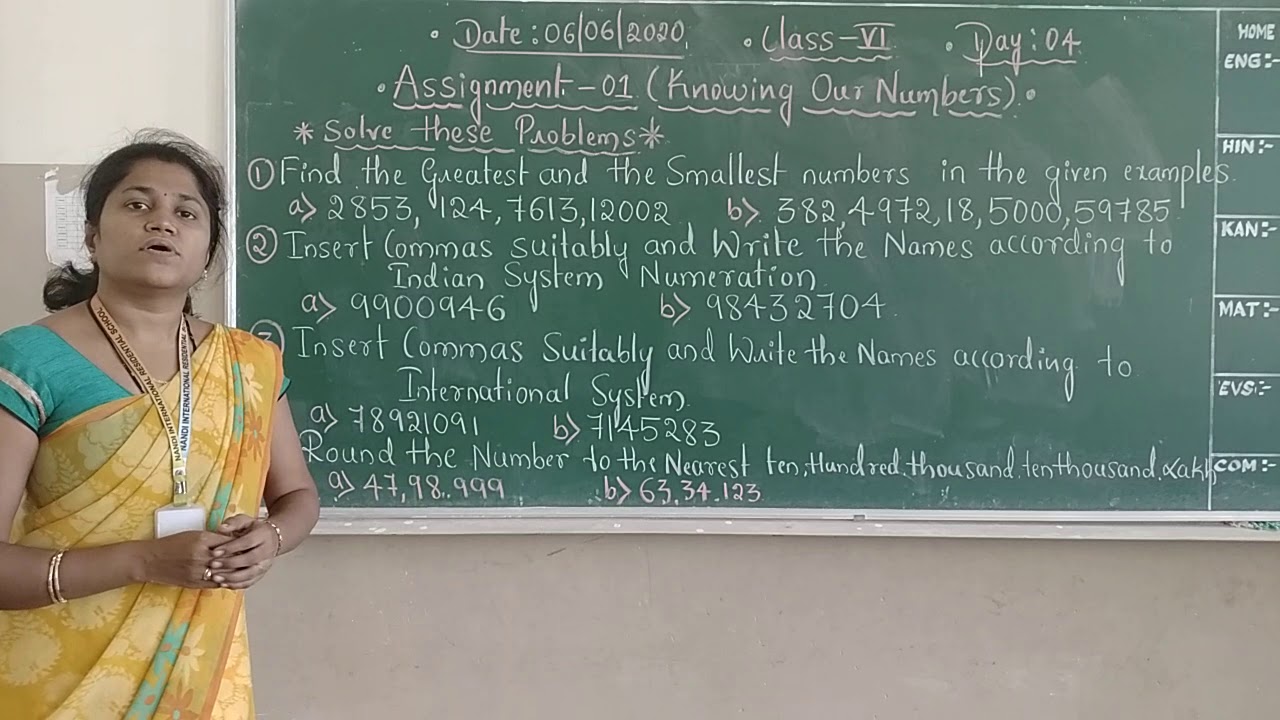 • Date : 06/06/2020 • Class-VI • Day : 04
• Assignment - 01 (Knowing Our Numbers) •
* Solve these Problems *
① Find the Greatest and the Smallest numbers in the given examples.
a> 2853, 124, 7613, 12002 b> 382, 4972, 18, 5000, 59785
② Insert Commas suitably and Write the Names according to
Indian System Numeration.
a> 9900946 b> 98432704
Insert Commas Suitably and Write the Names according to
International System.
a> 78921091 b> 7145283
Round the Number to the Nearest ten, Hundred, thousand, tenthousand, Lakh
a> 47,98,999 b> 63,34,123
HOME
ENG:-
HIN:-
KAN:-
MAT:-
EVS:-
COM:-
NANDI INTERNATIONAL RESIDENTIAL SCHOOL
NANDI INTERNATIONAL RESIDENTIAL